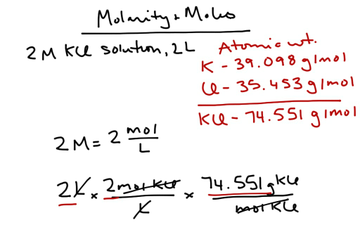 Molarity + Moles
2M KCl solution, 2L
Atomic wt.
K - 39.098 g/mol
Cl - 35.453 g/mol
KCl - 74.551 g/mol
2M = 2 mol/L
2L × 2 mol KCl/L × 74.551 g KCl/mol KCl